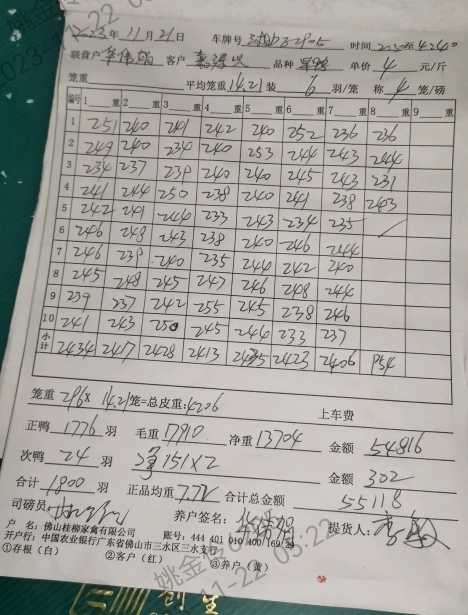 2023年 11月 21日 车牌号 时间
联营户 客户 品种 单价 4 元/斤
笼重 平均笼重 14.21 装 6 羽/笼 称 4 笼/磅
编号 1 重 2 重 3 重 4 重 5 重 6 重 7 重 8 重 9 重
1 251 240 241 242 240 252 236 236
2 249 240 234 240 253 244 243 244
3 234 237 239 240 240 245 243 231
4 241 244 250 238 240 241 238 243
5 242 241 244 233 243 234 235
6 246 248 243 238 240 246 244
7 246 239 240 235 244 242 240
8 245 248 245 247 246 248 244
9 239 237 242 255 245 238 246
10 241 243 250 245 244 233 237
小计 2434 2417 2428 2413 2423 2406 954
笼重 296 × 14.21 笼=总皮重: 4206 上车费
正鸭 1776 羽 毛重 17910 净重 13704 金额 54816
次鸭 24 羽 净 151×2 金额 302
合计 1800 羽 正品均重 7.72 合计总金额 55118
司磅员 养户签名: 提货人:
户 名: 佛山桂柳家禽有限公司 账号: 444 401 010 400 169 29
开户行: 中国农业银行广东省佛山市三水区三水支行
①存根（白） ②客户（红） ③养户（黄）